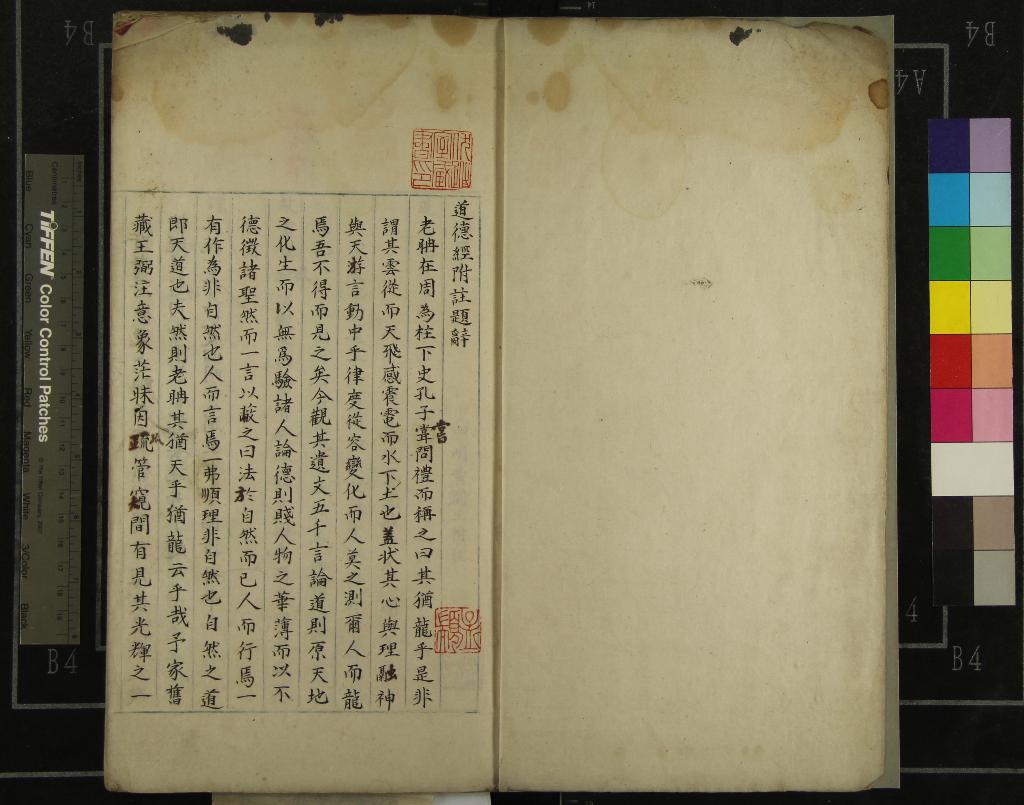 道德經附註題辭
老聃在周為柱下史孔子嘗問禮而稱之曰其猶龍乎是非
謂其雲從而天飛感震電而水下土也蓋狀其心與理融神
與天游言動中乎律度從容變化而人莫之測爾人而龍
焉吾不得而見之矣今觀其遺文五千言論道則原天地
之化生而以無為驗諸人論德則賤人物之華薄而以不
德徵諸聖然而一言以蔽之曰法於自然而已人而行焉一
有作為非自然也人而言焉一弗順理非自然也自然之道
即天道也夫然則老聃其猶天乎猶龍云乎哉予家舊
藏王弼注意象茫昧因疏管窺間有見其光輝之一
嘗
B4
B4
A4
B4
4
B4
TIFFEN Color Control Patches
Centimetres
Blue
Cyan
Green
Yellow
Red
Magenta
White
3/Color
Black